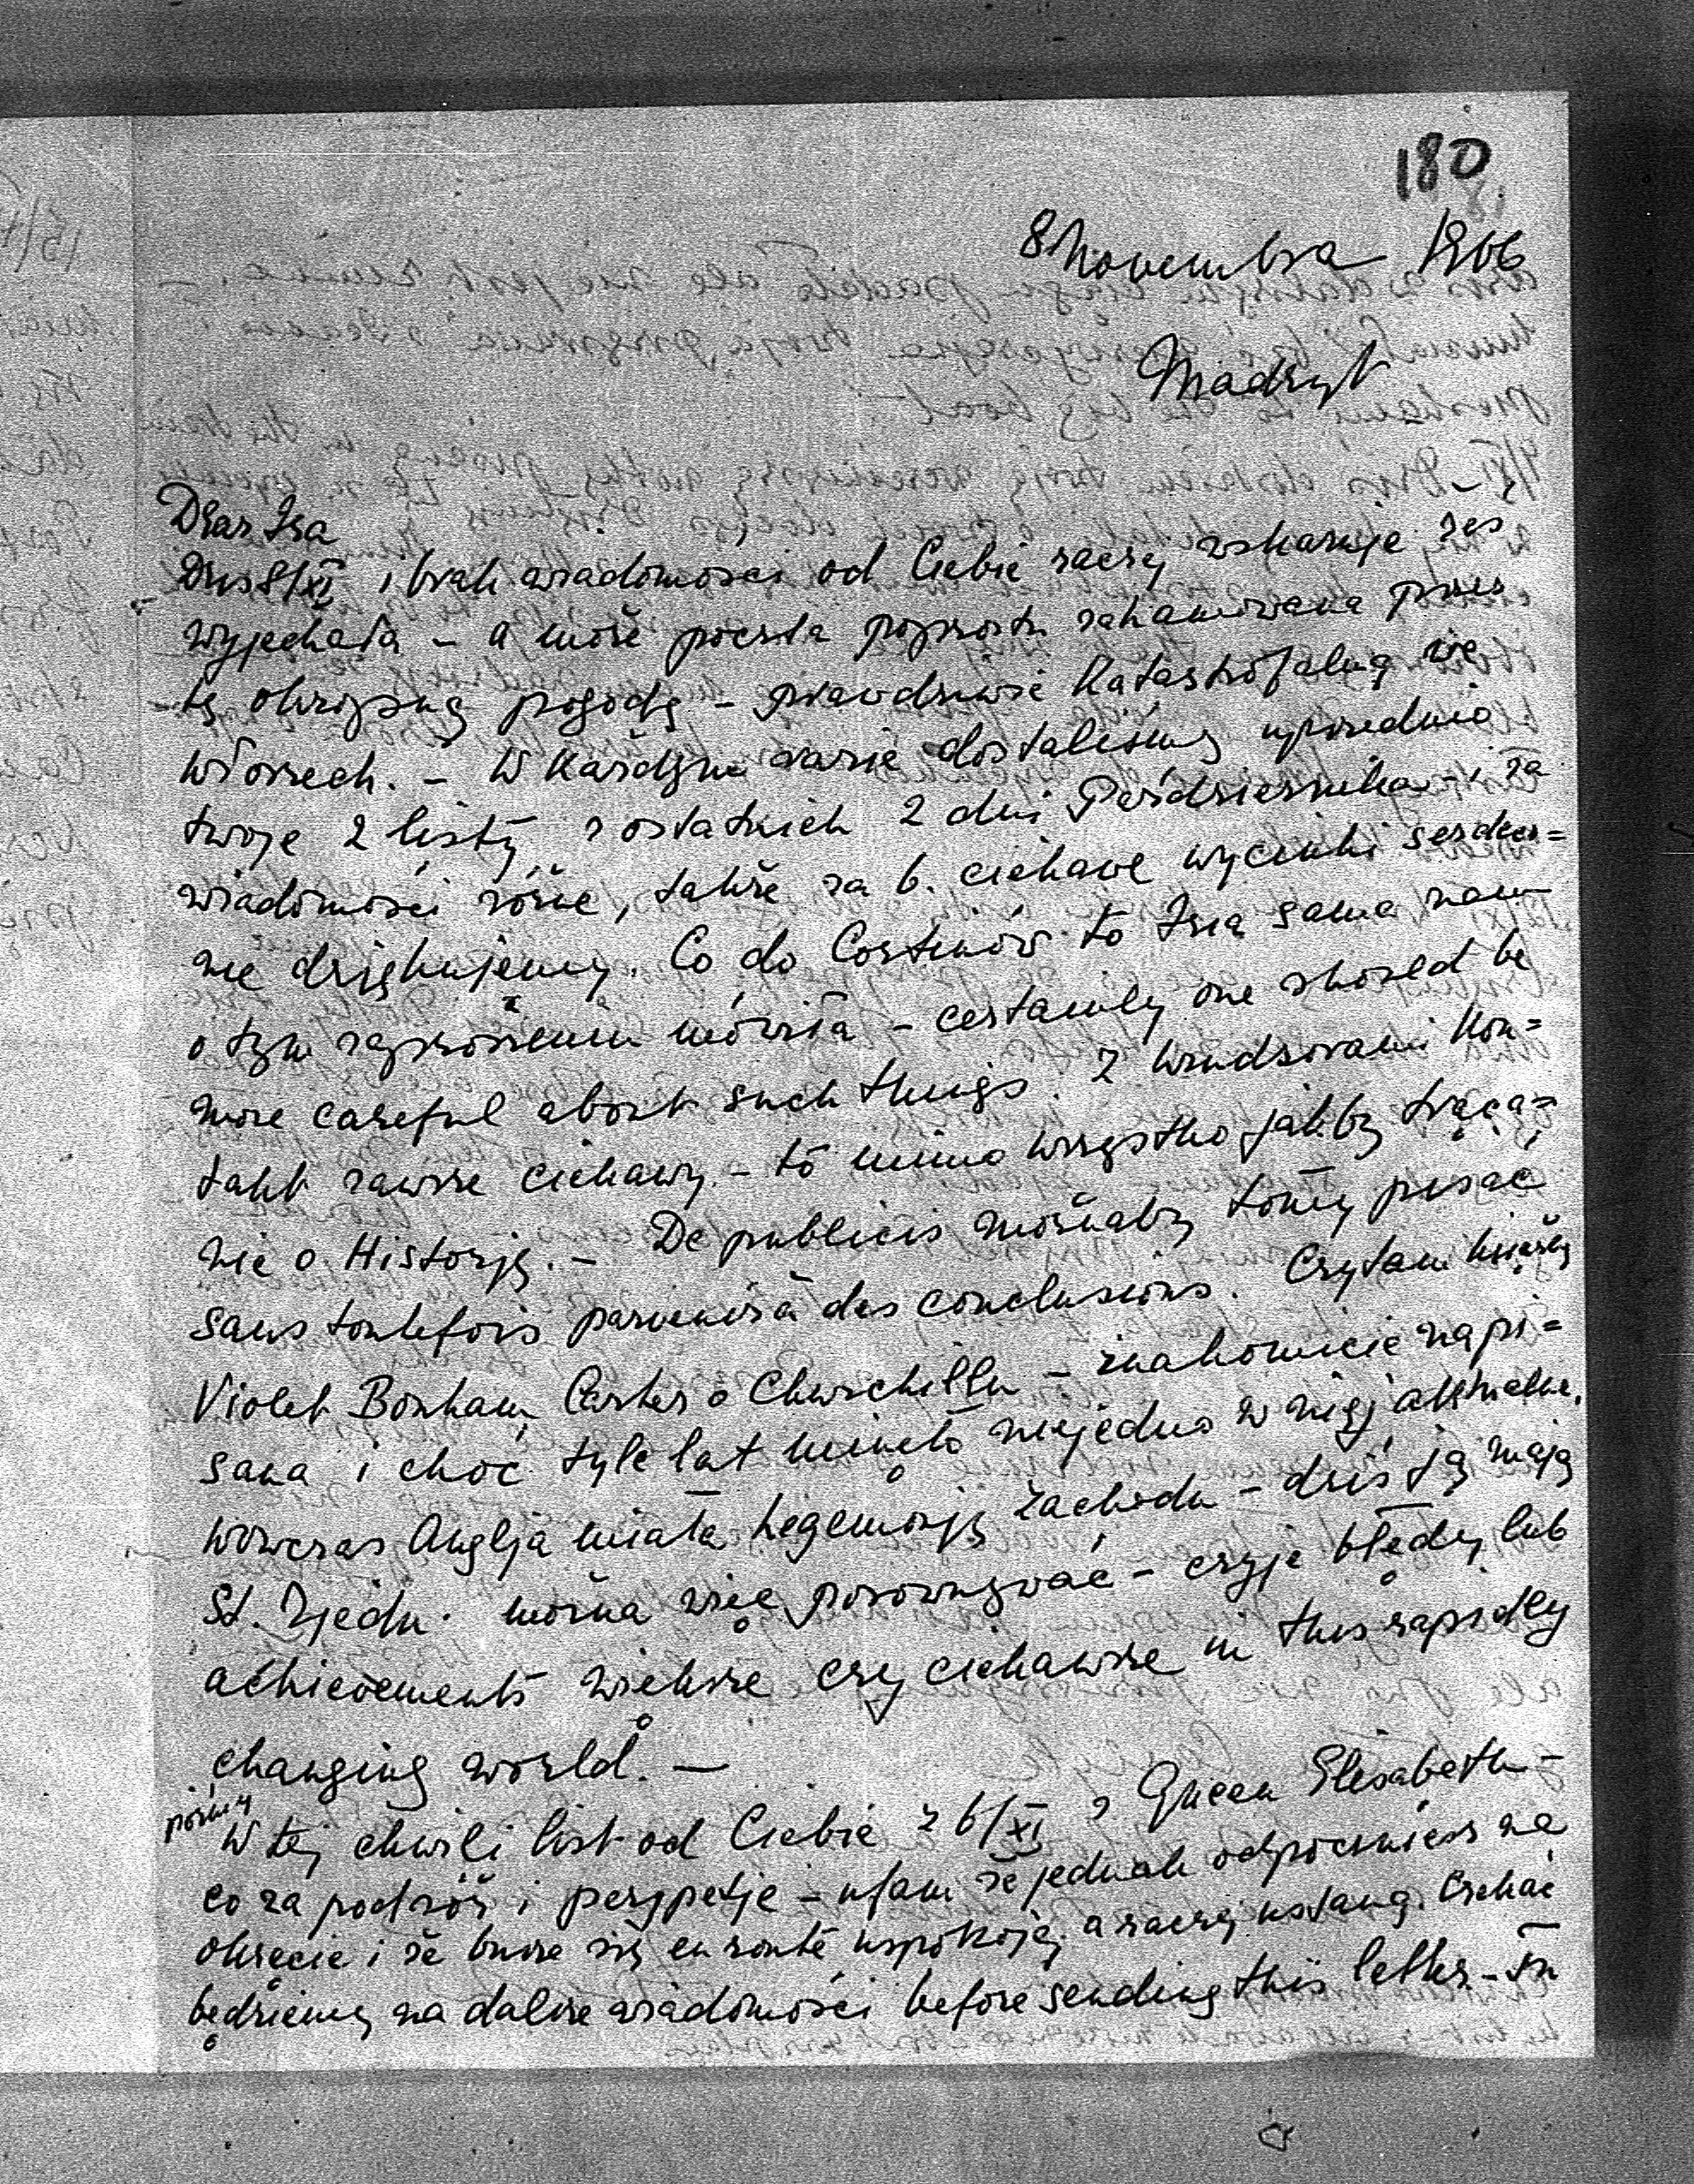 180
8 Novembra 1966
Madryt
Dear Isa
Dziś 8/XI i brak wiadomości od Ciebie raczej wskazuje żeś
wyjechała – a może poczta poprostu zahamowana przez
tę okropną pogodę – prawdziwie katastrofalną we
Włoszech. – W każdym razie dostaliśmy uprzednio
twoje 2 listy z ostatnich 2 dni Października – i za
wiadomości różne, także za b. ciekawe wycinki serdecz=
nie dziękujemy. Co do Costinów to Isia sama nam
o tym zaproszeniu mówiła – certainly one should be
more careful about such things. Z Windsorami kon=
takt zawsze ciekawy – to mimo wszystko jakby trąca=
nie o Historję. – De publicis możnaby tomy pisać
sans toutefois parvenir à des conclusions. Czytam książkę
Violet Bonham Carter o Churchillu – znakomicie napi=
sana i choć tyle lat minęło niejedno w niej aktualne.
Wówczas Anglja miała hegemonję Zachodu – dziś ją mają
St. Zjedn. można więc porównywać – czyje błędy lub
achievements większe czy ciekawsze in this rapidly
changing world. –
W tej chwili list od Ciebie z 6/XI z Queen Elisabeth –
co za podróż i perypetje – ufam że jednak odpoczniesz na
okręcie i że burze się en route uspokoją, a raczej ustaną. Czekać
będziemy na dalsze wiadomości before sending this letter –